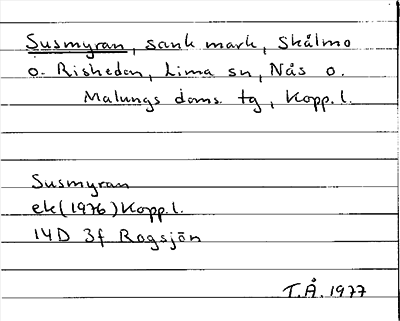 Susmyran, sank mark, Skålmo
o. Risheden, Lima sn, Nås o.
Malungs doms. tg, Kopp.l.
Susmyran
ek (1976) Kopp.l.
14D 3f Rogsjön
T.Å. 1977